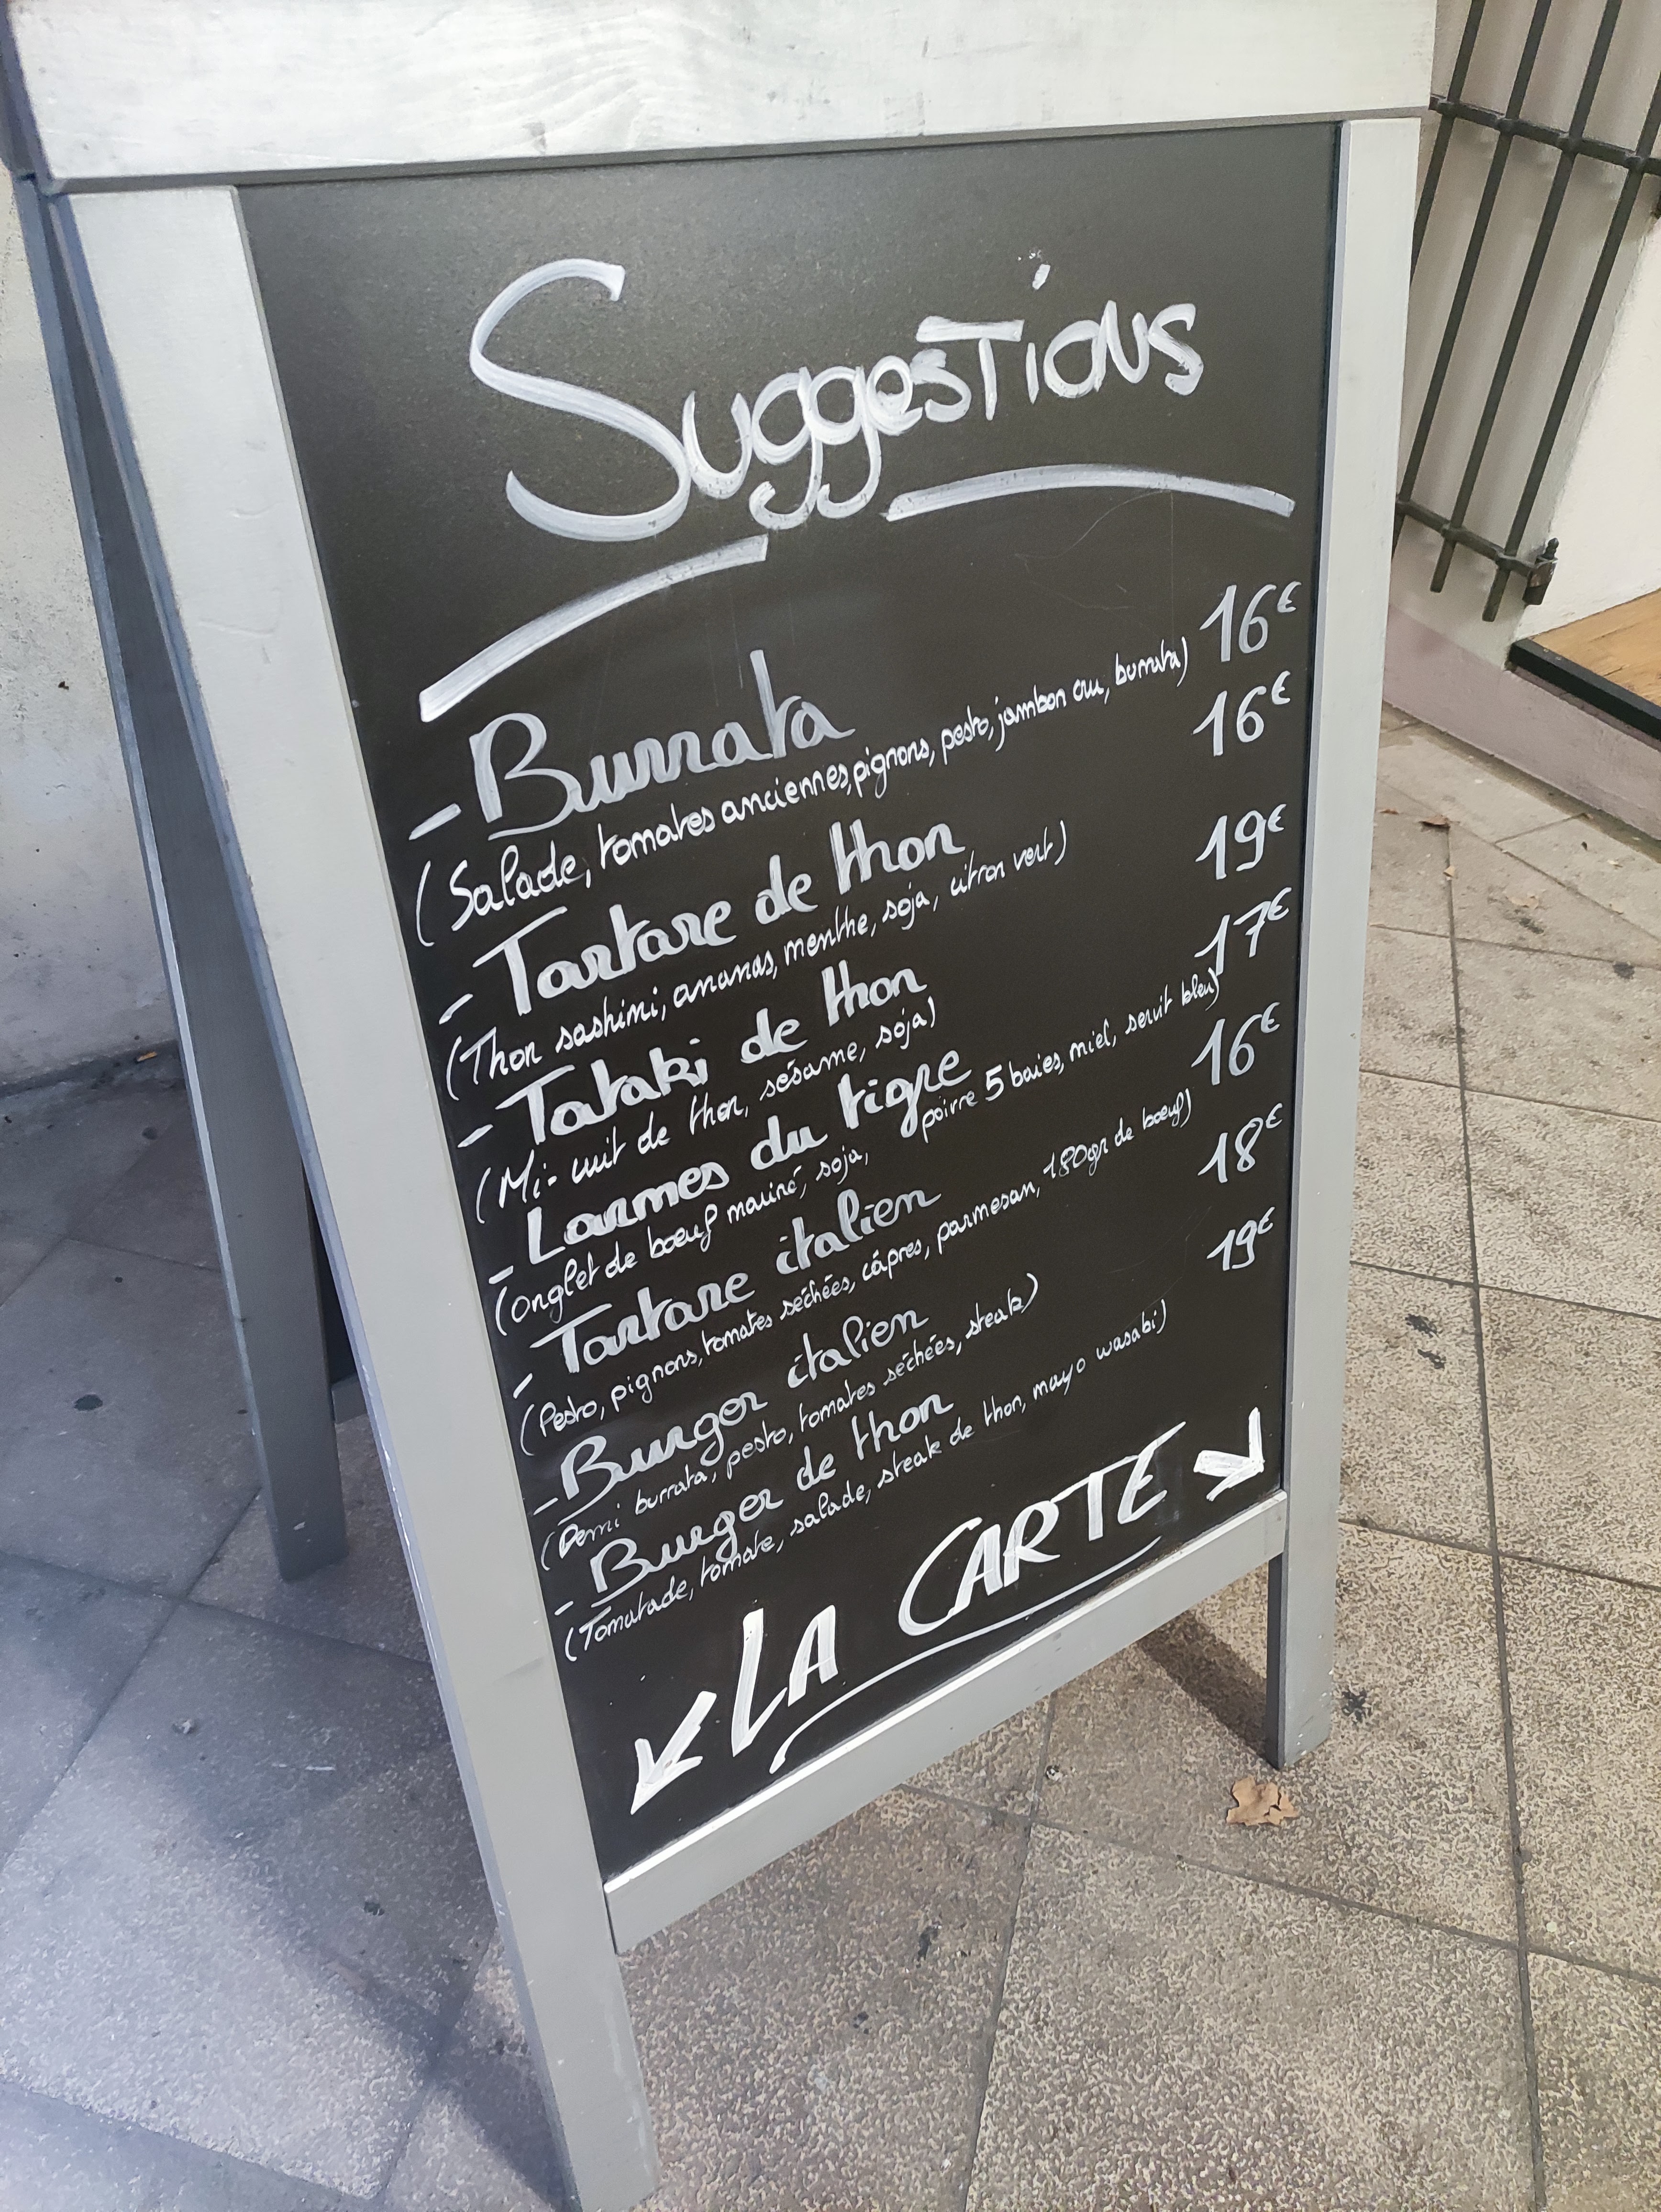 Suggestions
- Burrata 16€
(Salade, tomates anciennes, pignons, pesto, jambon cru, burrata)
- Tartare de thon 16€
(Thon sashimi, ananas, menthe, soja, citron vert)
- Tataki de thon 19€
(Mi-cuit de thon, sésame, soja)
- Larmes du tigre 17€
(Onglet de boeuf mariné, soja, poivre 5 baies, miel, servit bleu)
- Tartare italien 16€
(Pesto, pignons, tomates séchées, câpres, parmesan, 180gr de boeuf)
- Burger italien 18€
(Demi burrata, pesto, tomates séchées, steak)
- Burger de thon 19€
(Tomatade, tomate, salade, steak de thon, mayo wasabi)
LA CARTE